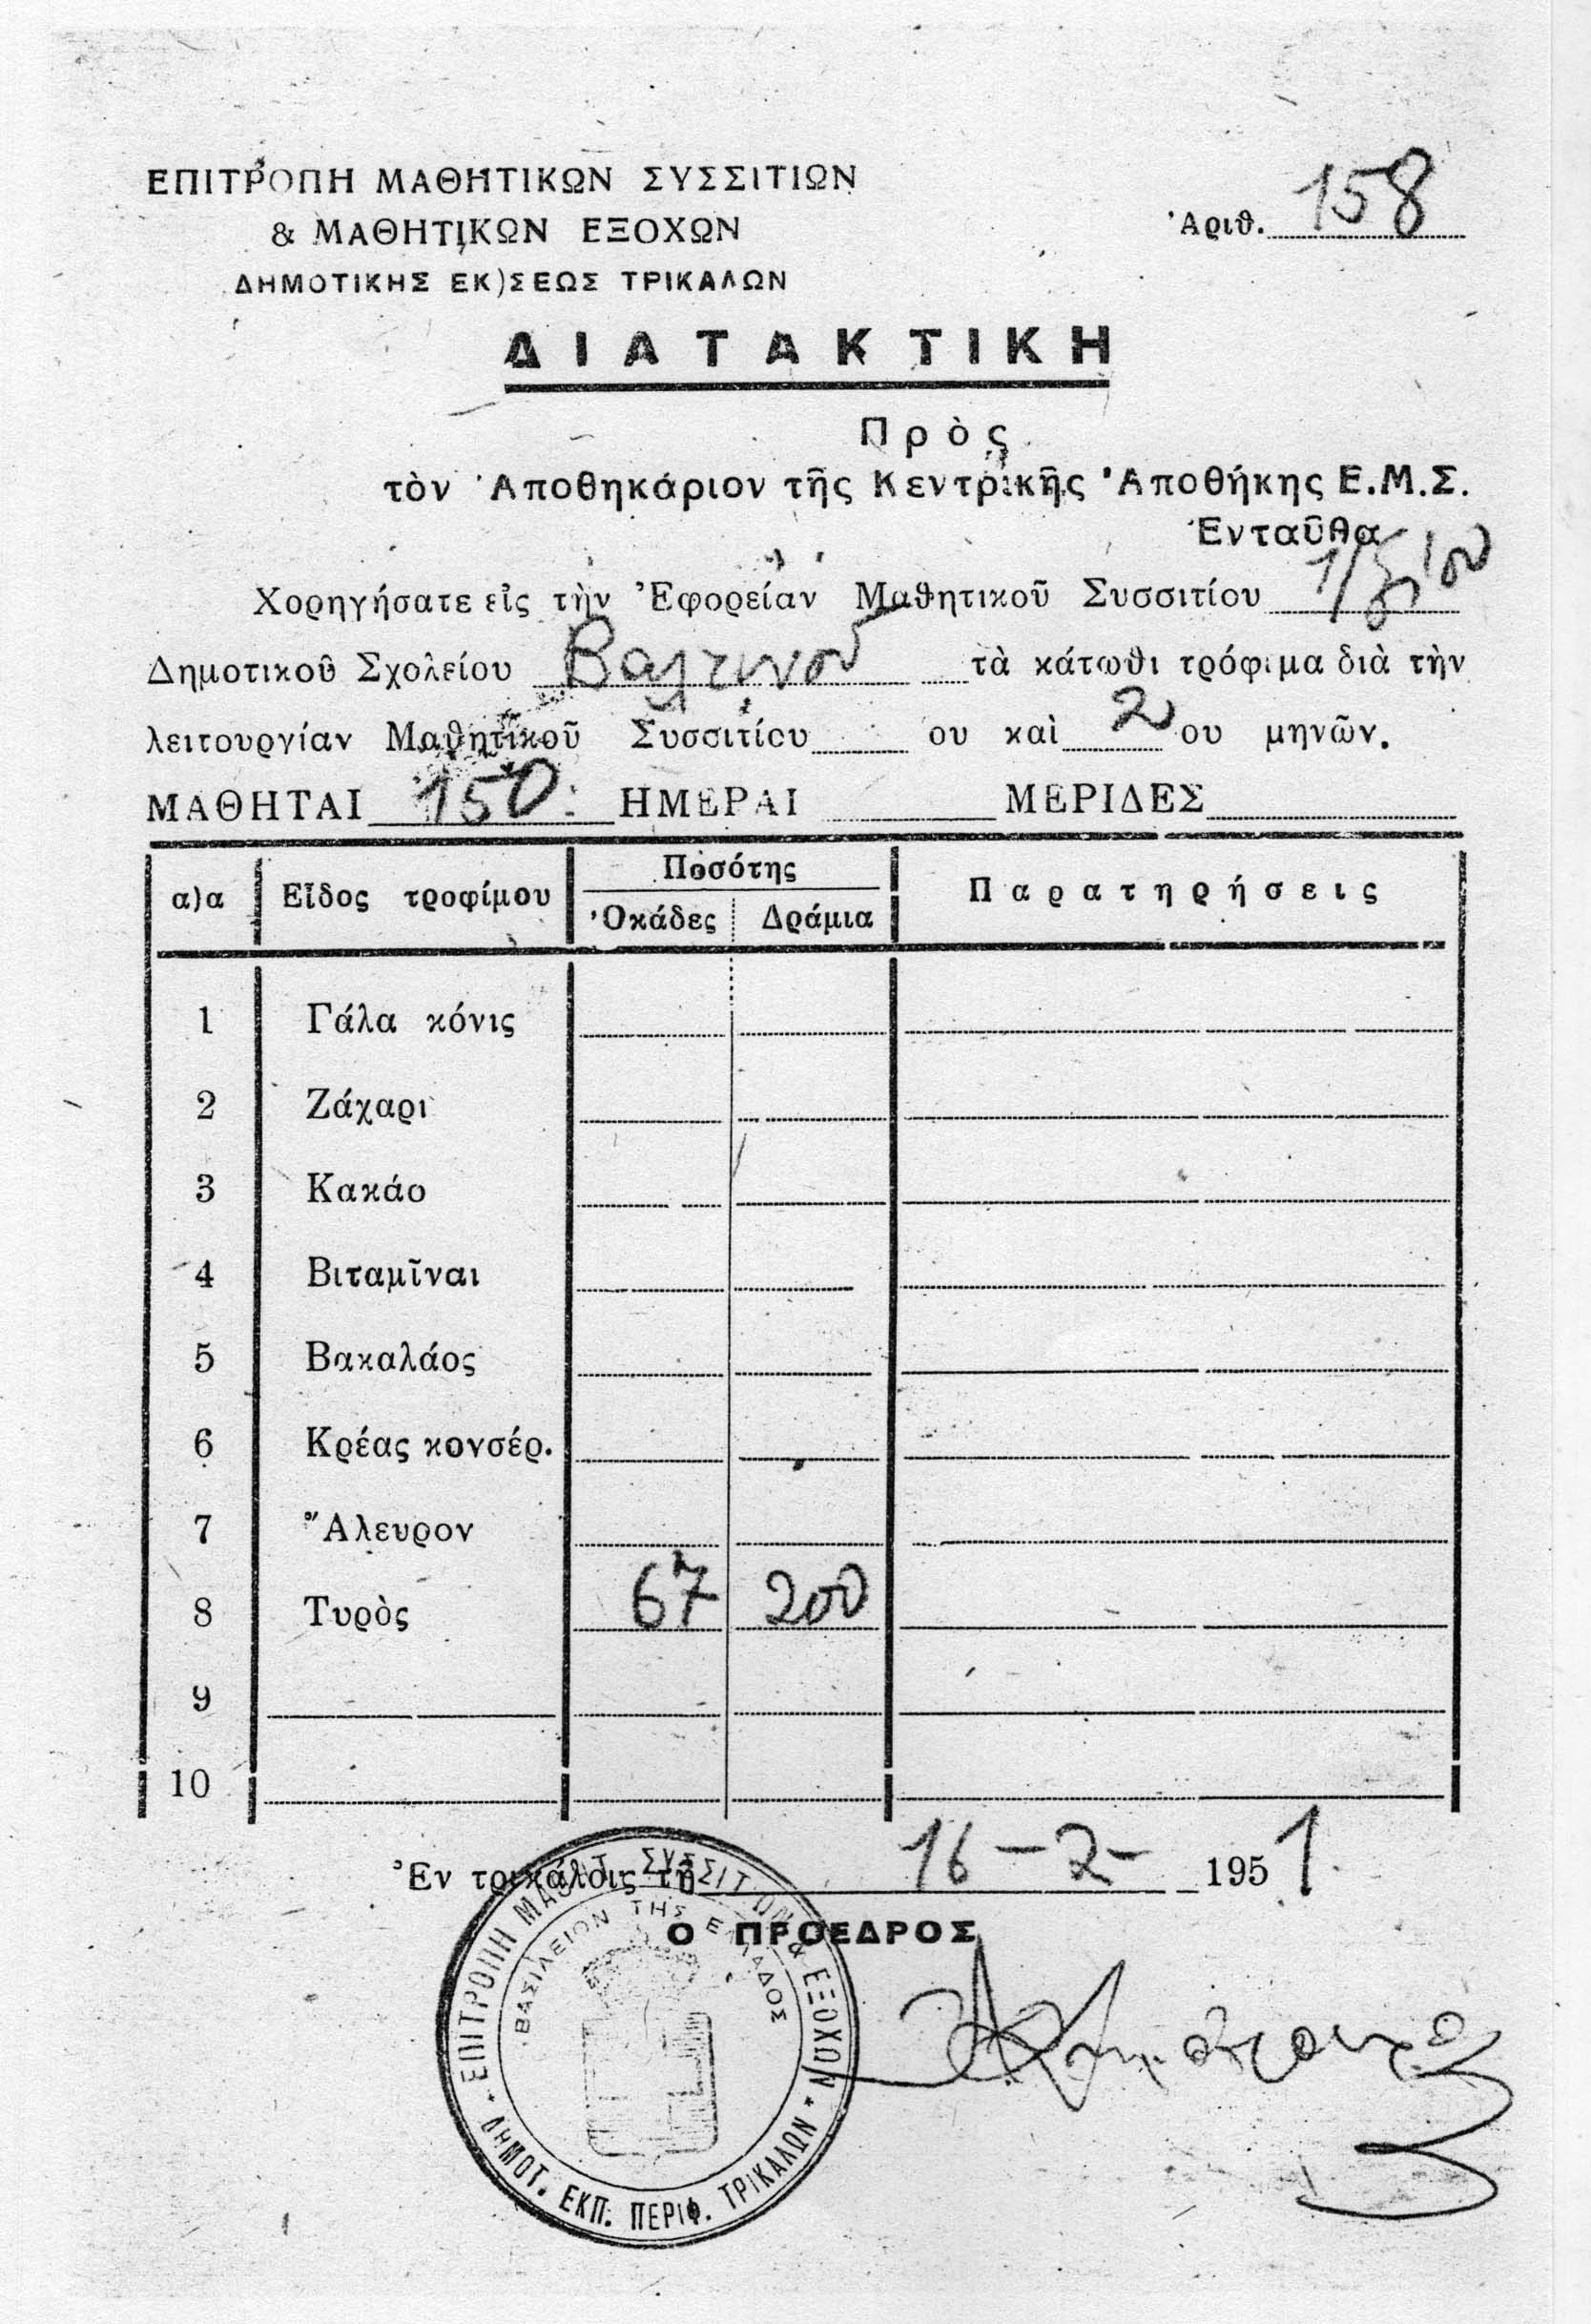 ΕΠΙΤΡΟΠΗ ΜΑΘΗΤΙΚΩΝ ΣΥΣΣΙΤΙΩΝ
& ΜΑΘΗΤΙΚΩΝ ΕΞΟΧΩΝ
ΔΗΜΟΤΙΚΗΣ ΕΚ)ΣΕΩΣ ΤΡΙΚΑΛΩΝ
Ἀριθ. 158
ΔΙΑΤΑΚΤΙΚΗ
Πρὸς
τὸν Ἀποθηκάριον τῆς Κεντρικῆς Ἀποθήκης Ε.Μ.Σ.
Ἐνταῦθα
Χορηγήσατε εἰς τὴν Ἐφορείαν Μαθητικοῦ Συσσιτίου
Δημοτικοῦ Σχολείου Βαλτινοῦ τὰ κάτωθι τρόφιμα διὰ τὴν
λειτουργίαν Μαθητικοῦ Συσσιτίου ου καὶ 2 ου μηνῶν.
ΜΑΘΗΤΑΙ 150 ΗΜΕΡΑΙ ΜΕΡΙΔΕΣ
α)α Εἶδος τροφίμου Ποσότης Παρατηρήσεις
Ὀκάδες Δράμια
1 Γάλα κόνις
2 Ζάχαρι
3 Κακάο
4 Βιταμῖναι
5 Βακαλάος
6 Κρέας κονσέρ.
7 Ἄλευρον
8 Τυρὸς 67 200
9
10
Ἐν τρικάλοις τῇ 16-2- 1951
Ο ΠΡΟΕΔΡΟΣ
ΕΠΙΤΡΟΠΗ ΜΑΘΗΤ. ΣΥΣΣΙΤΙΩΝ & ΕΞΟΧΩΝ
ΒΑΣΙΛΕΙΟΝ ΤΗΣ ΕΛΛΑΔΟΣ
ΔΗΜΟΤ. ΕΚΠ. ΠΕΡΙΦ. ΤΡΙΚΑΛΩΝ